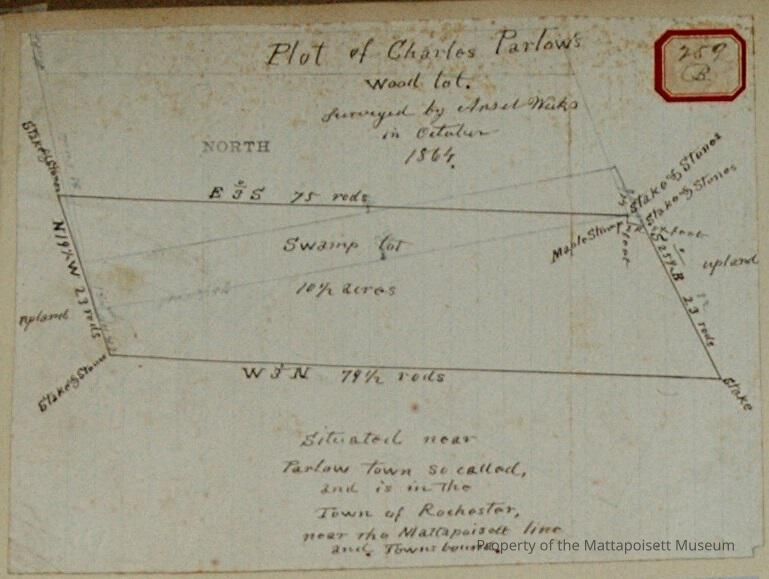 Plot of Charles Parlow's
Wood lot.
Surveyed by Ansel Weeks
in October
1864.
259
B.
NORTH
Stake & Stones
Stake & Stones
Stake & Stones
E 3° S 75 rods
Maple Stump
foot
Swamp lot
10½ acres
upland
upland
N 19½ W 23 rods
S 25½ 23 rods
Stake & Stones
W 3° N 79½ rods
Stake
Situated near
Parlow town so called,
and is in the
Town of Rochester,
near the Mattapoisett line
and Towns bounds.
Property of the Mattapoisett Museum